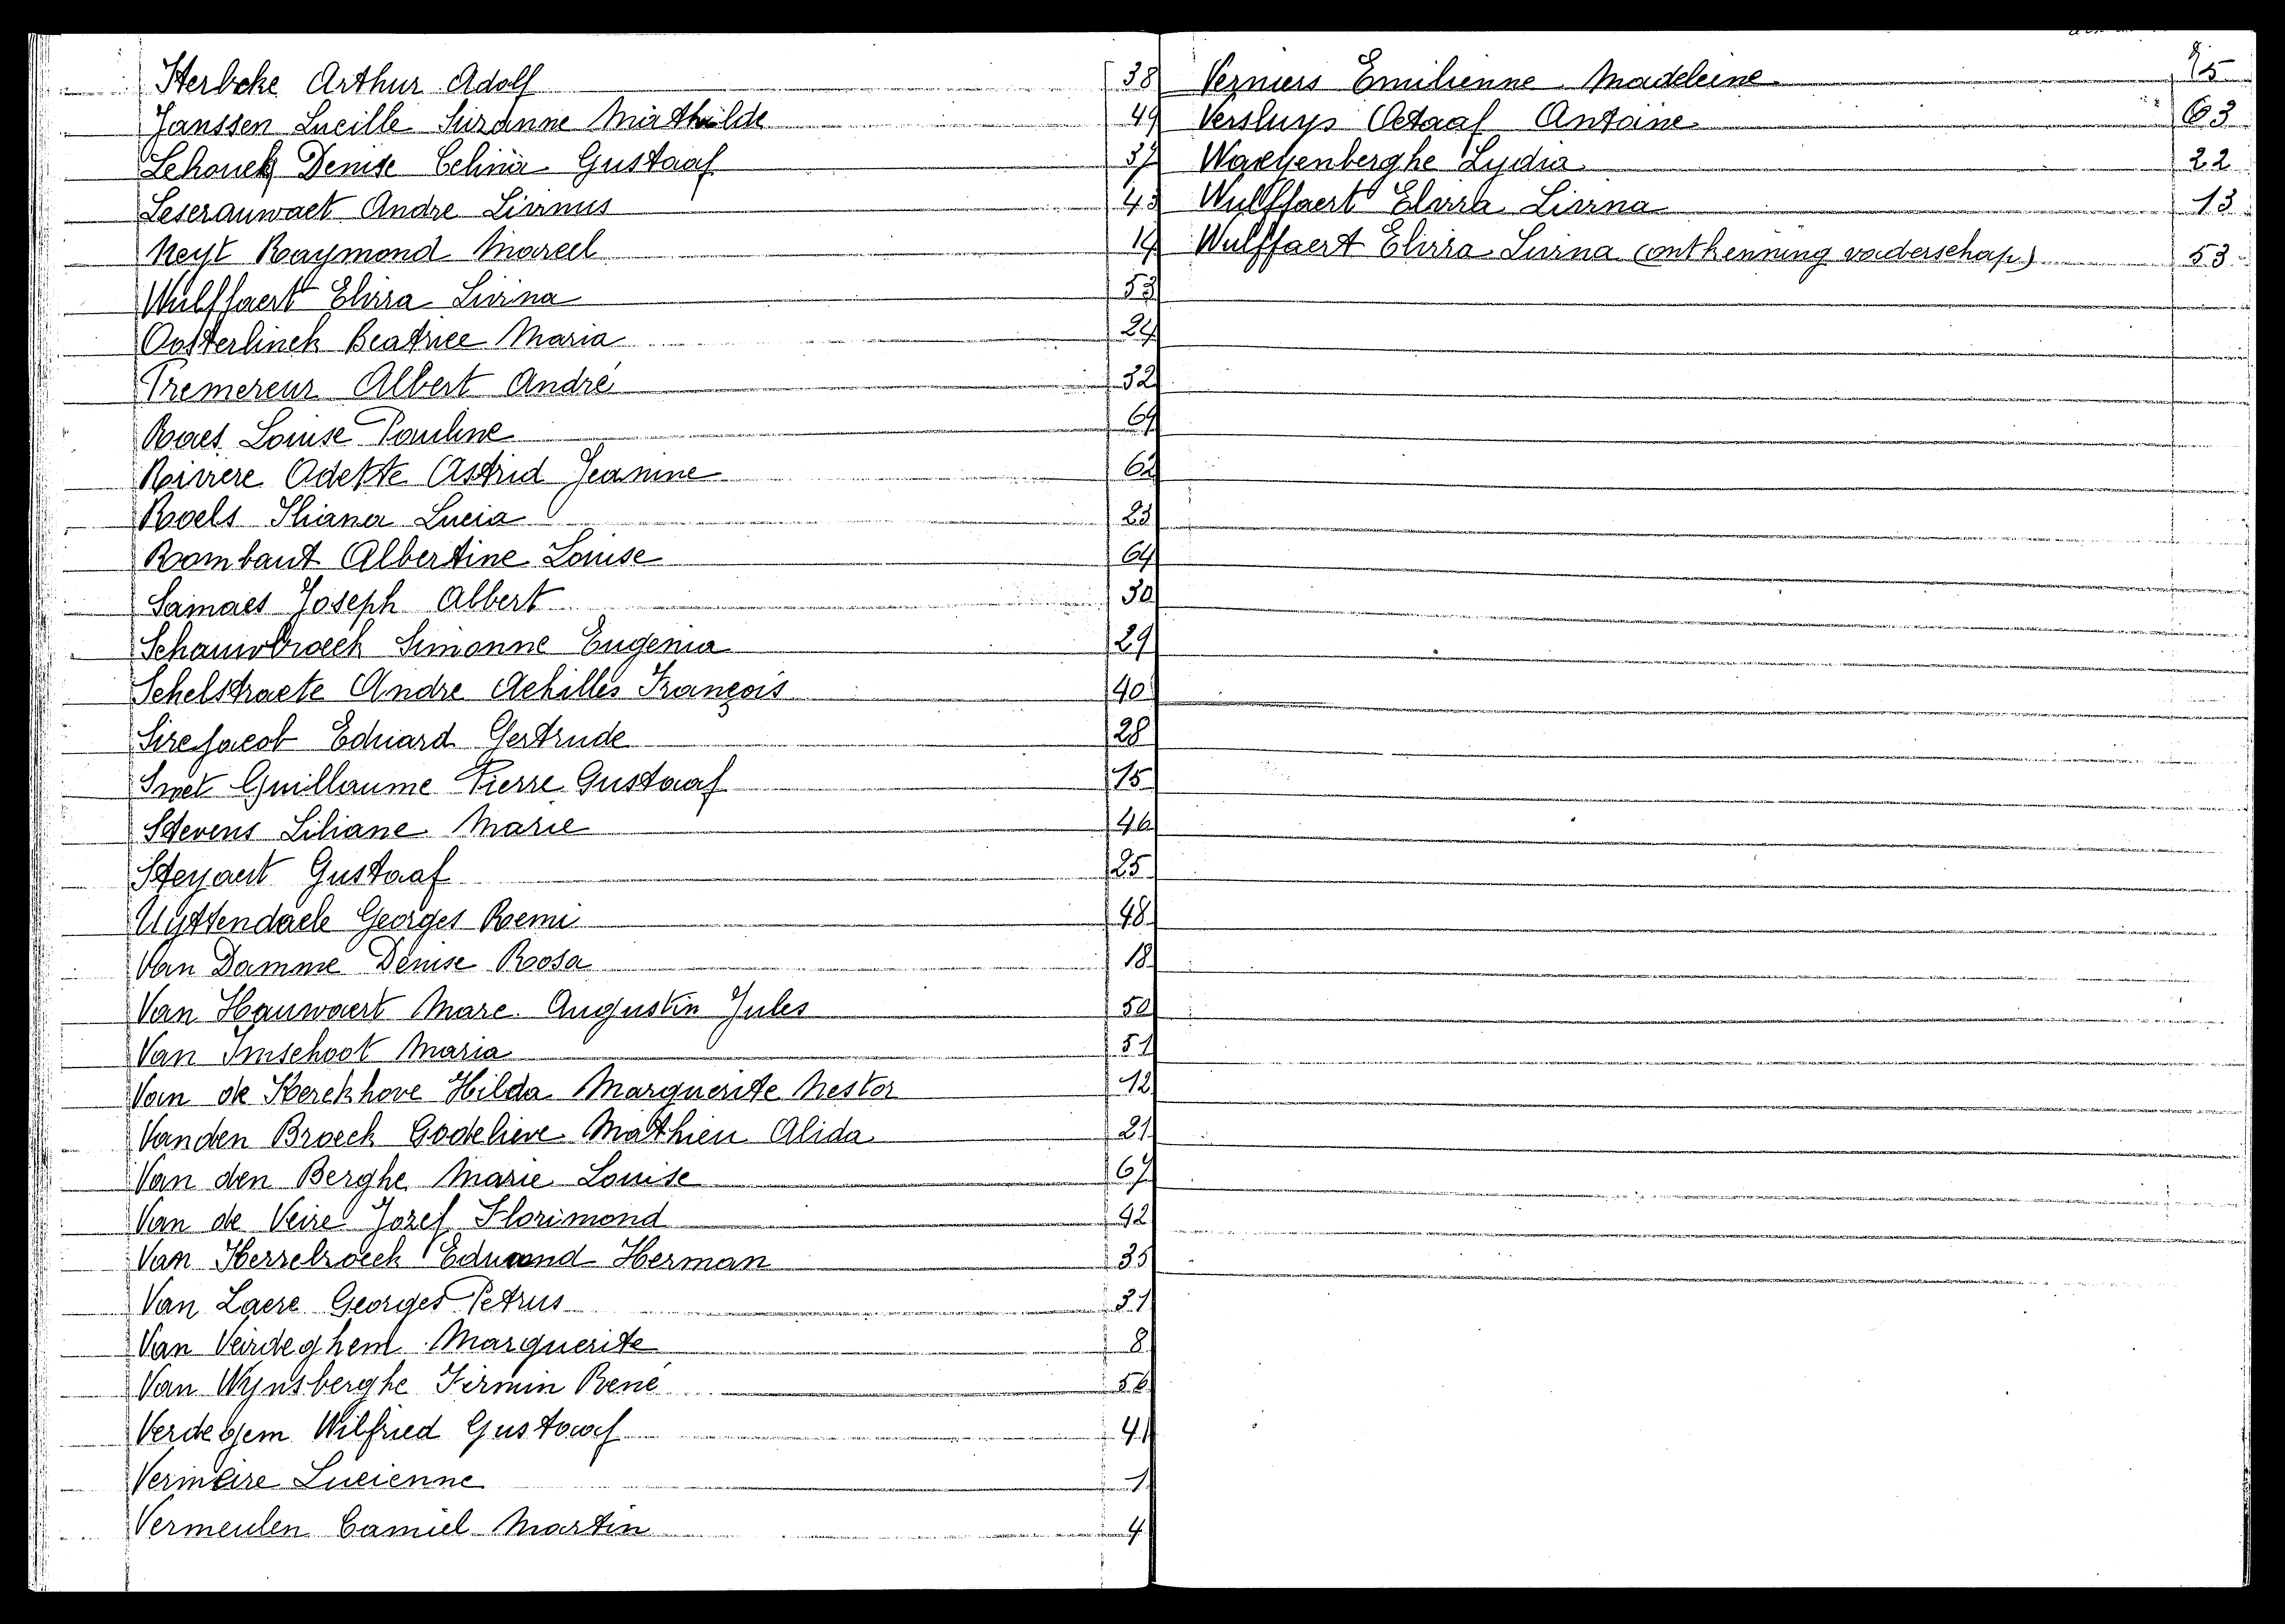 Herbeke Arthur Adolf 38
Janssen Lucille Suzanne Mathilde 49
Lehouck Denise Celina Gustaaf 37
Leserauwaet Andre Livinus 43
Neyt Raymond Marcel 14
Wulffaert Elvira Livina 53
Oosterlinck Beatrice Maria 24
Premereur Albert André 32
Raes Louise Pauline 69
Rivière Odette Astrid Jeanine 62
Roels Iliana Lucia 23
Rombaut Albertine Louise 64
Samaes Joseph Albert 30
Schauwbroeck Simonne Eugenia 29
Schelstraete Andre Achilles François 40
Sire Jacob Eduard Gertrude 28
Smet Guillaume Pierre Gustaaf 15
Stevens Liliane Marie 46
Steyaert Gustaaf 25
Uyttendaele Georges Remi 48
Van Damme Denise Rosa 18
Van Hauwaert Marc Augustin Jules 50
Van Imschoot Maria 51
Van de Kerckhove Hilda Marguerite Nestor 12
Vanden Broeck Godelieve Mathieu Alida 21
Van den Berghe Marie Louise 67
Van de Veire Jozef Florimond 42
Van Kerrebroeck Edmond Herman 35
Van Laere Georges Petrus 31
Van Veirdeghem Marguerite 8
Van Wynsberghe Firmin René 56
Verdegem Wilfried Gustaaf 41
Vermeire Lucienne 1
Vermeulen Camiel Martin 4
Verniers Emilienne Madeleine 5
Versluys Octaaf Antoine 63
Waeyenberghe Lydia 22
Wulffaert Elvira Livina 13
Wulffaert Elvira Livina (ontkenning vaderschap) 53